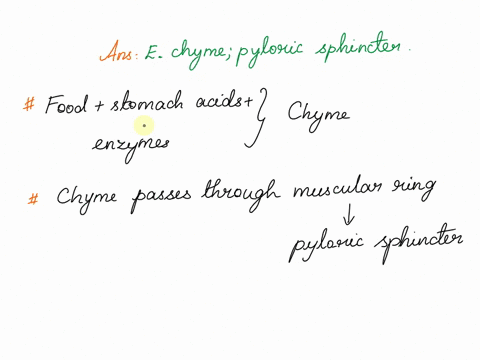 Ans: E. chyme; pyloric sphincter.
# Food + stomach acids + } Chyme
enzymes
# Chyme passes through muscular ring
↓
pyloric sphincter